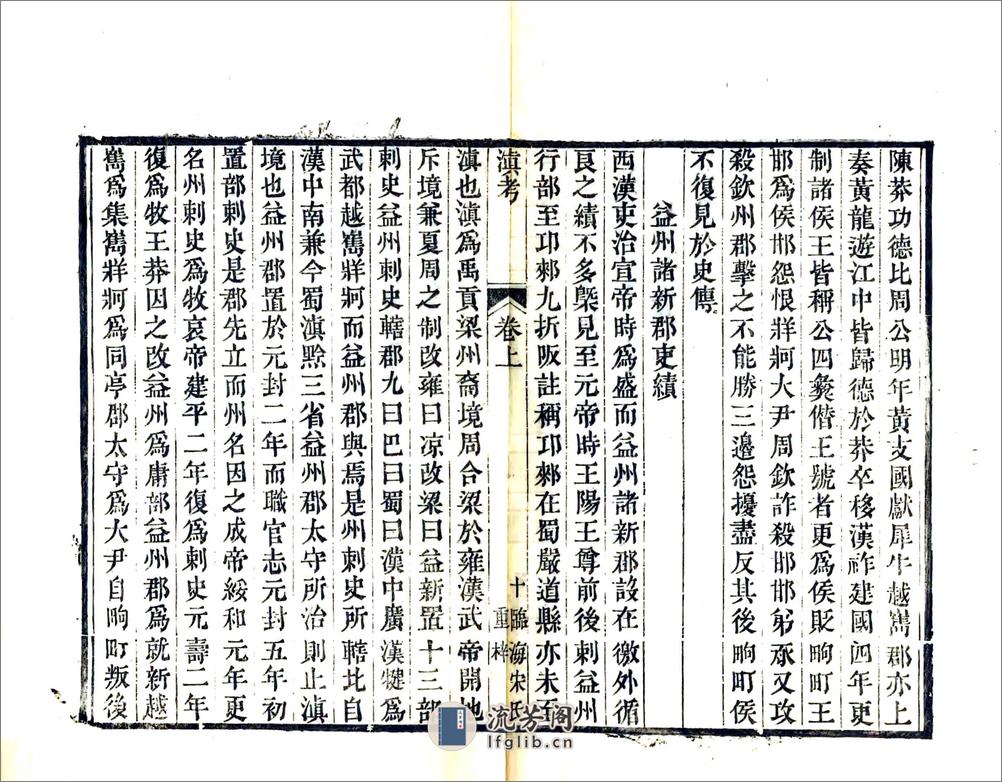 陳莽功德比周公明年黃支國獻犀牛越嶲郡亦上
奏黃龍遊江中皆歸德於莽卒移漢祚建國四年更
制諸侯王皆稱公四彝僭王號者更爲侯貶眗町王
邯爲侯邯怨恨牂牁大尹周欽詐殺邯邯弟承又攻
殺欽州郡擊之不能勝三邉怨擾盡反其後眗町侯
不復見於史傳
益州諸新郡吏績
西漢吏治宣帝時爲盛而益州諸新郡設在徼外循
良之績不多槩見至元帝時王陽王尊前後刺益州
行部至卭郲九折阪註稱卭郲在蜀嚴道縣亦未至
滇考
卷上
十
臨海宋氏
重梓
滇也滇爲禹貢梁州裔境周合梁於雍漢武帝開地
斥境兼夏周之制改雍曰凉改梁曰益新置十三部
刺史益州刺史轄郡九曰巴曰蜀曰漢中廣漢犍爲
武都越嶲牂牁而益州郡與焉是州刺史所轄北自
漢中南兼今蜀滇黔三省益州郡太守所治則止滇
境也益州郡置於元封二年而職官志元封五年初
置部刺史是郡先立而州名因之成帝綏和元年更
名州刺史爲牧哀帝建平二年復爲刺史元壽二年
復爲牧王莽因之改益州爲庸部益州郡爲就新越
嶲爲集嶲牂牁爲同亭郡太守爲大尹自眗町叛後
流芳阁
lfglib.cn